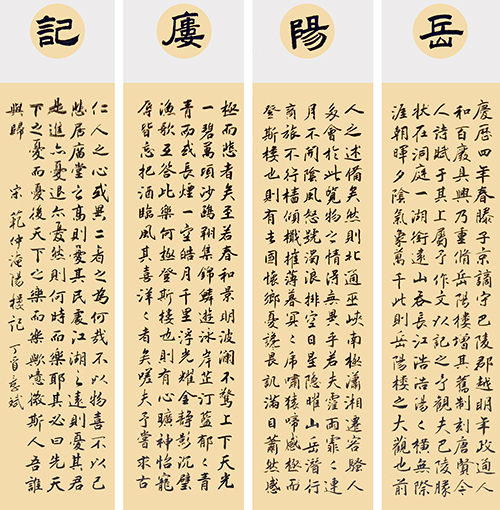 岳陽廔記
慶曆四年春滕子京謫守巴陵郡越明年政通人
和百廢具興乃重脩岳陽樓增其舊制刻唐賢今
人詩賦于其上屬予作文以記之予觀夫巴陵勝
狀在洞庭一湖銜遠山吞長江浩々湯々橫無際
涯朝暉夕陰氣象萬千此則岳陽樓之大觀也前
人之述備矣然則北通巫峽南極瀟湘遷客騷人
多會於此覽物之情得無異乎若夫霪雨霏々連
月不開陰風怒號濁浪排空日星隱曜山岳潛行
商旅不行檣傾楫摧薄暮冥々虎嘯猿啼感極而
登斯樓也則有去國懷鄉憂讒畏譏滿目蕭然感
極而悲者矣至若春和景明波瀾不驚上下天光
一碧萬頃沙鷗翔集錦鱗遊泳岸芷汀蘭郁々青
青而或長煙一空皓月千里浮光耀金靜影沉璧
漁歌互答此樂何極登斯樓也則有心曠神怡寵
辱皆忘把酒臨風其喜洋々者矣嗟夫予嘗求古
仁人之心或異二者之為何哉不以物喜不以己
悲居廟堂之高則憂其民處江湖之遠則憂其君
是進亦憂退亦憂然則何時而樂耶其必曰先天
下之憂而憂後天下之樂而樂歟噫微斯人吾誰
與歸 宋 範仲淹陽樓記 丁酉志斌